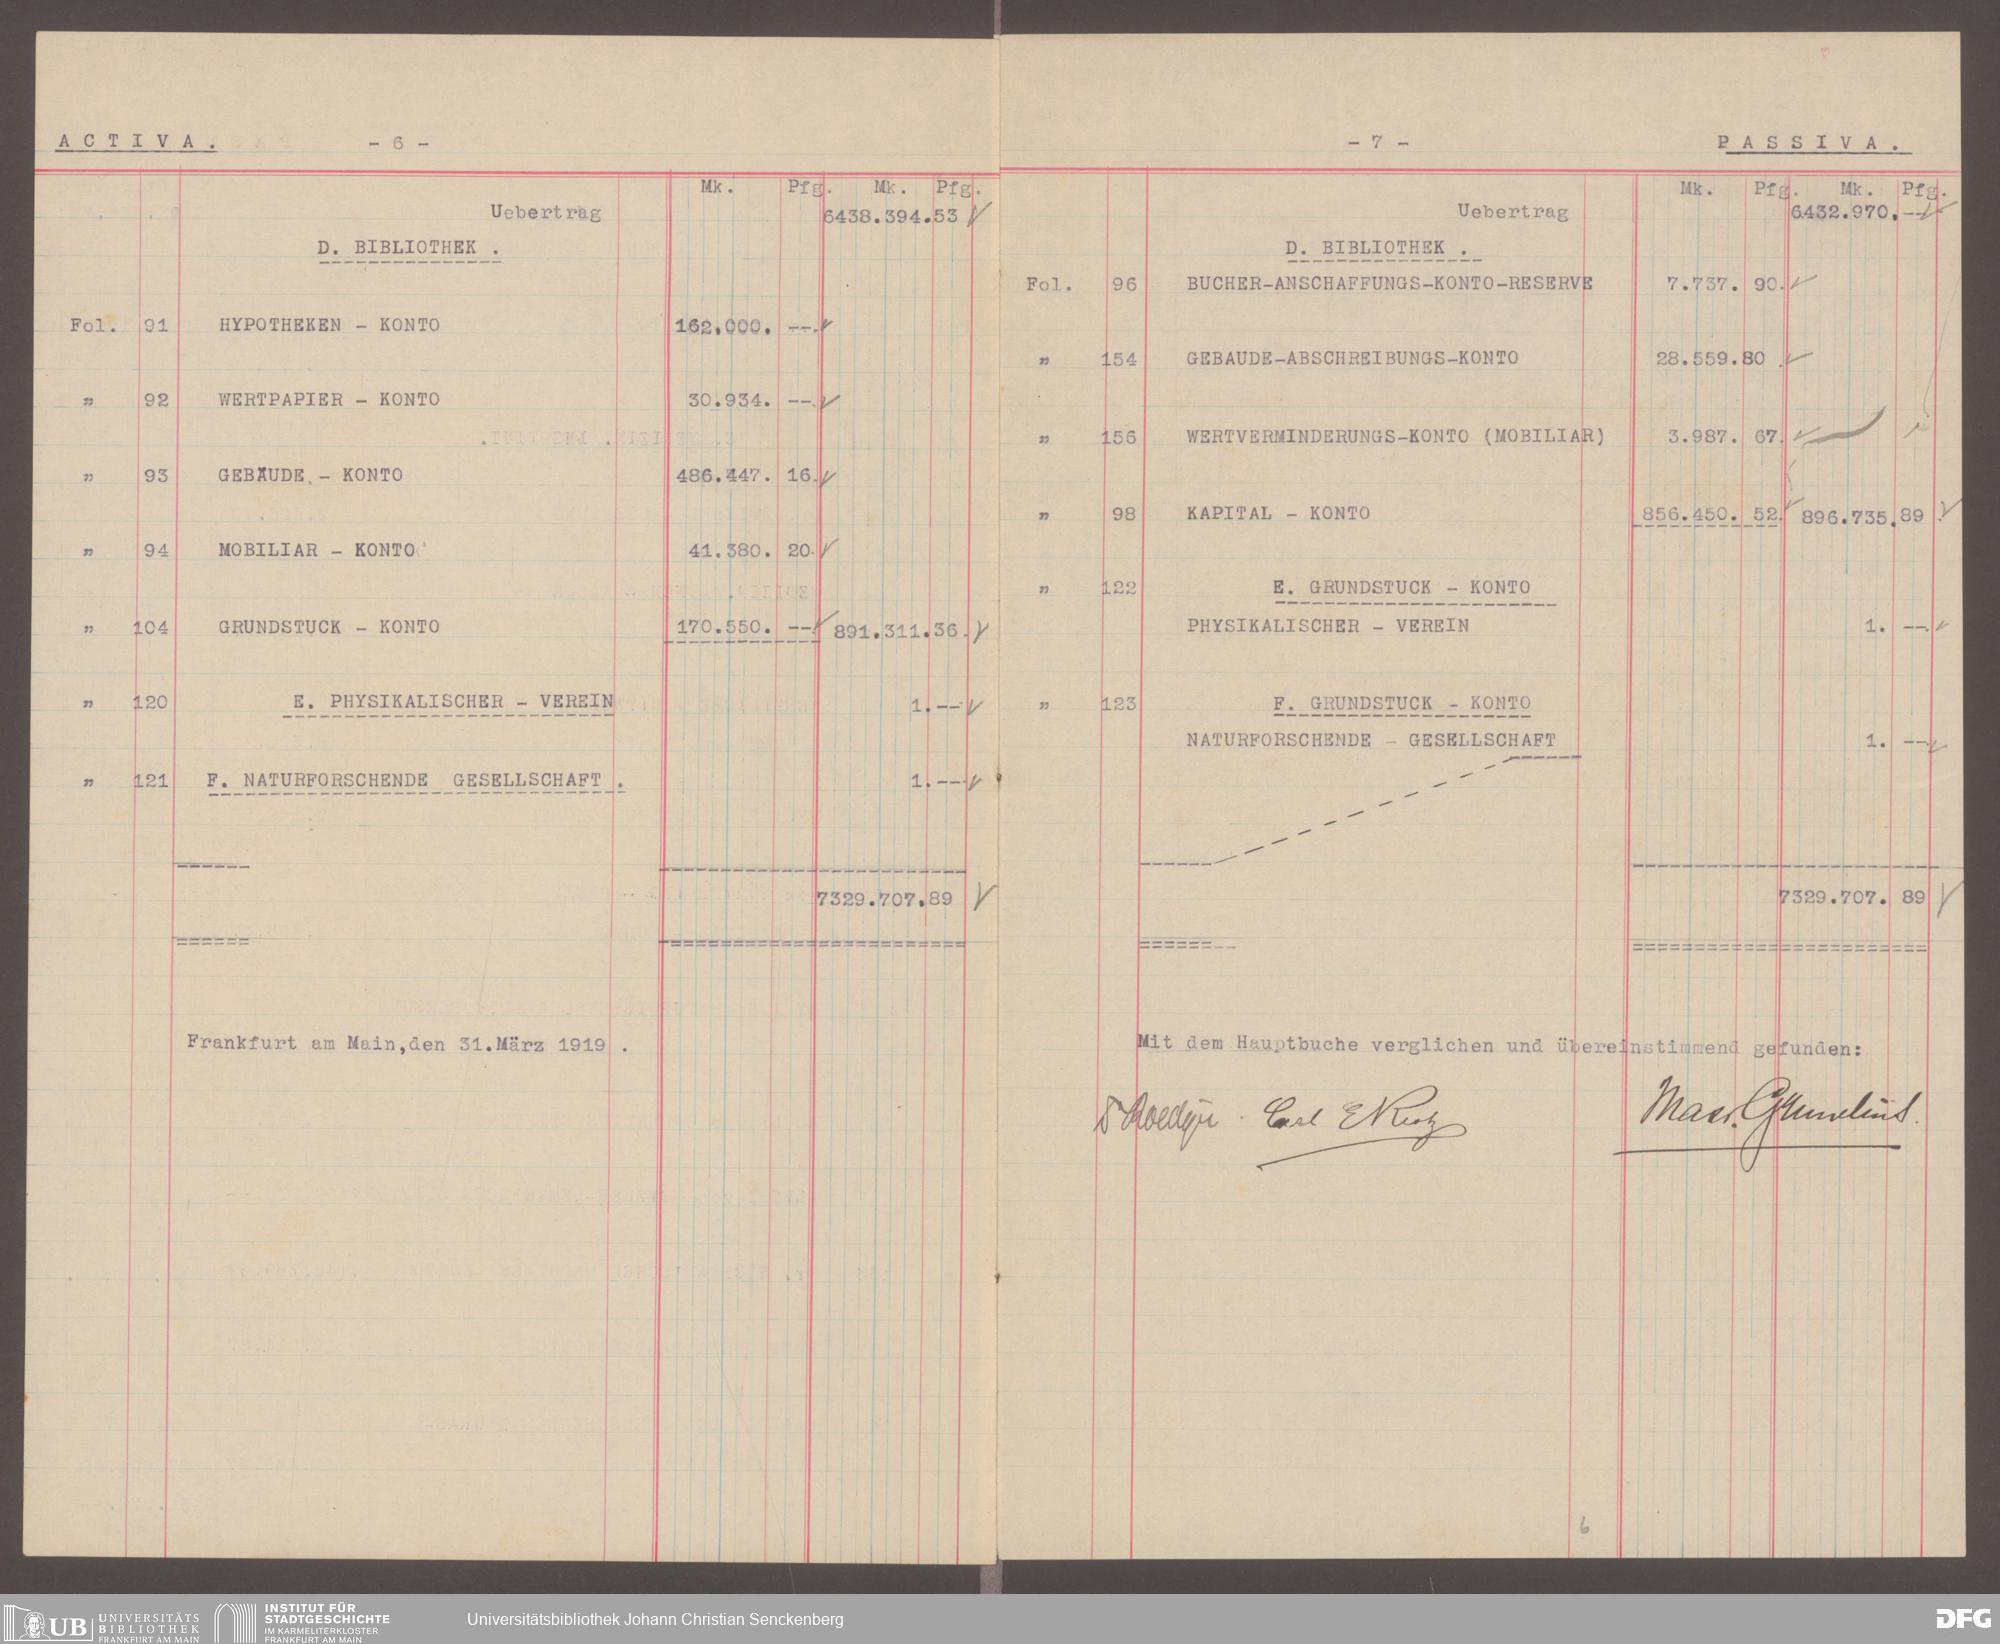 A C T I V A . - 6 -
Mk. Pfg. Mk. Pfg.
Uebertrag 6438.394.53
D. BIBLIOTHEK .
Fol. 91 HYPOTHEKEN - KONTO 162.000. --.
" 92 WERTPAPIER - KONTO 30.934. --.
" 93 GEBÄUDE - KONTO 486.447. 16.
" 94 MOBILIAR - KONTO 41.380. 20.
" 104 GRUNDSTUCK - KONTO 170.550. --. 891.311.36.
" 120 E. PHYSIKALISCHER - VEREIN 1.--.
" 121 F. NATURFORSCHENDE GESELLSCHAFT . 1.--.
7329.707.89
Frankfurt am Main,den 31.März 1919 .
- 7 - P A S S I V A .
Mk. Pfg. Mk. Pfg.
Uebertrag 6432.970.--
D. BIBLIOTHEK .
Fol. 96 BUCHER-ANSCHAFFUNGS-KONTO-RESERVE 7.737. 90.
" 154 GEBAUDE-ABSCHREIBUNGS-KONTO 28.559.80 .
" 156 WERTVERMINDERUNGS-KONTO (MOBILIAR) 3.987. 67.
" 98 KAPITAL - KONTO 856.450. 52. 896.735.89 .
" 122 E. GRUNDSTUCK - KONTO
PHYSIKALISCHER - VEREIN 1. --.
" 123 F. GRUNDSTUCK - KONTO
NATURFORSCHENDE - GESELLSCHAFT 1. --.
7329.707. 89
Mit dem Hauptbuche verglichen und übereinstimmend gefunden:
Carl
6
UB UNIVERSITÄTS
BIBLIOTHEK
FRANKFURT AM MAIN
INSTITUT FÜR
STADTGESCHICHTE
IM KARMELITERKLOSTER
FRANKFURT AM MAIN
Universitätsbibliothek Johann Christian Senckenberg
DFG